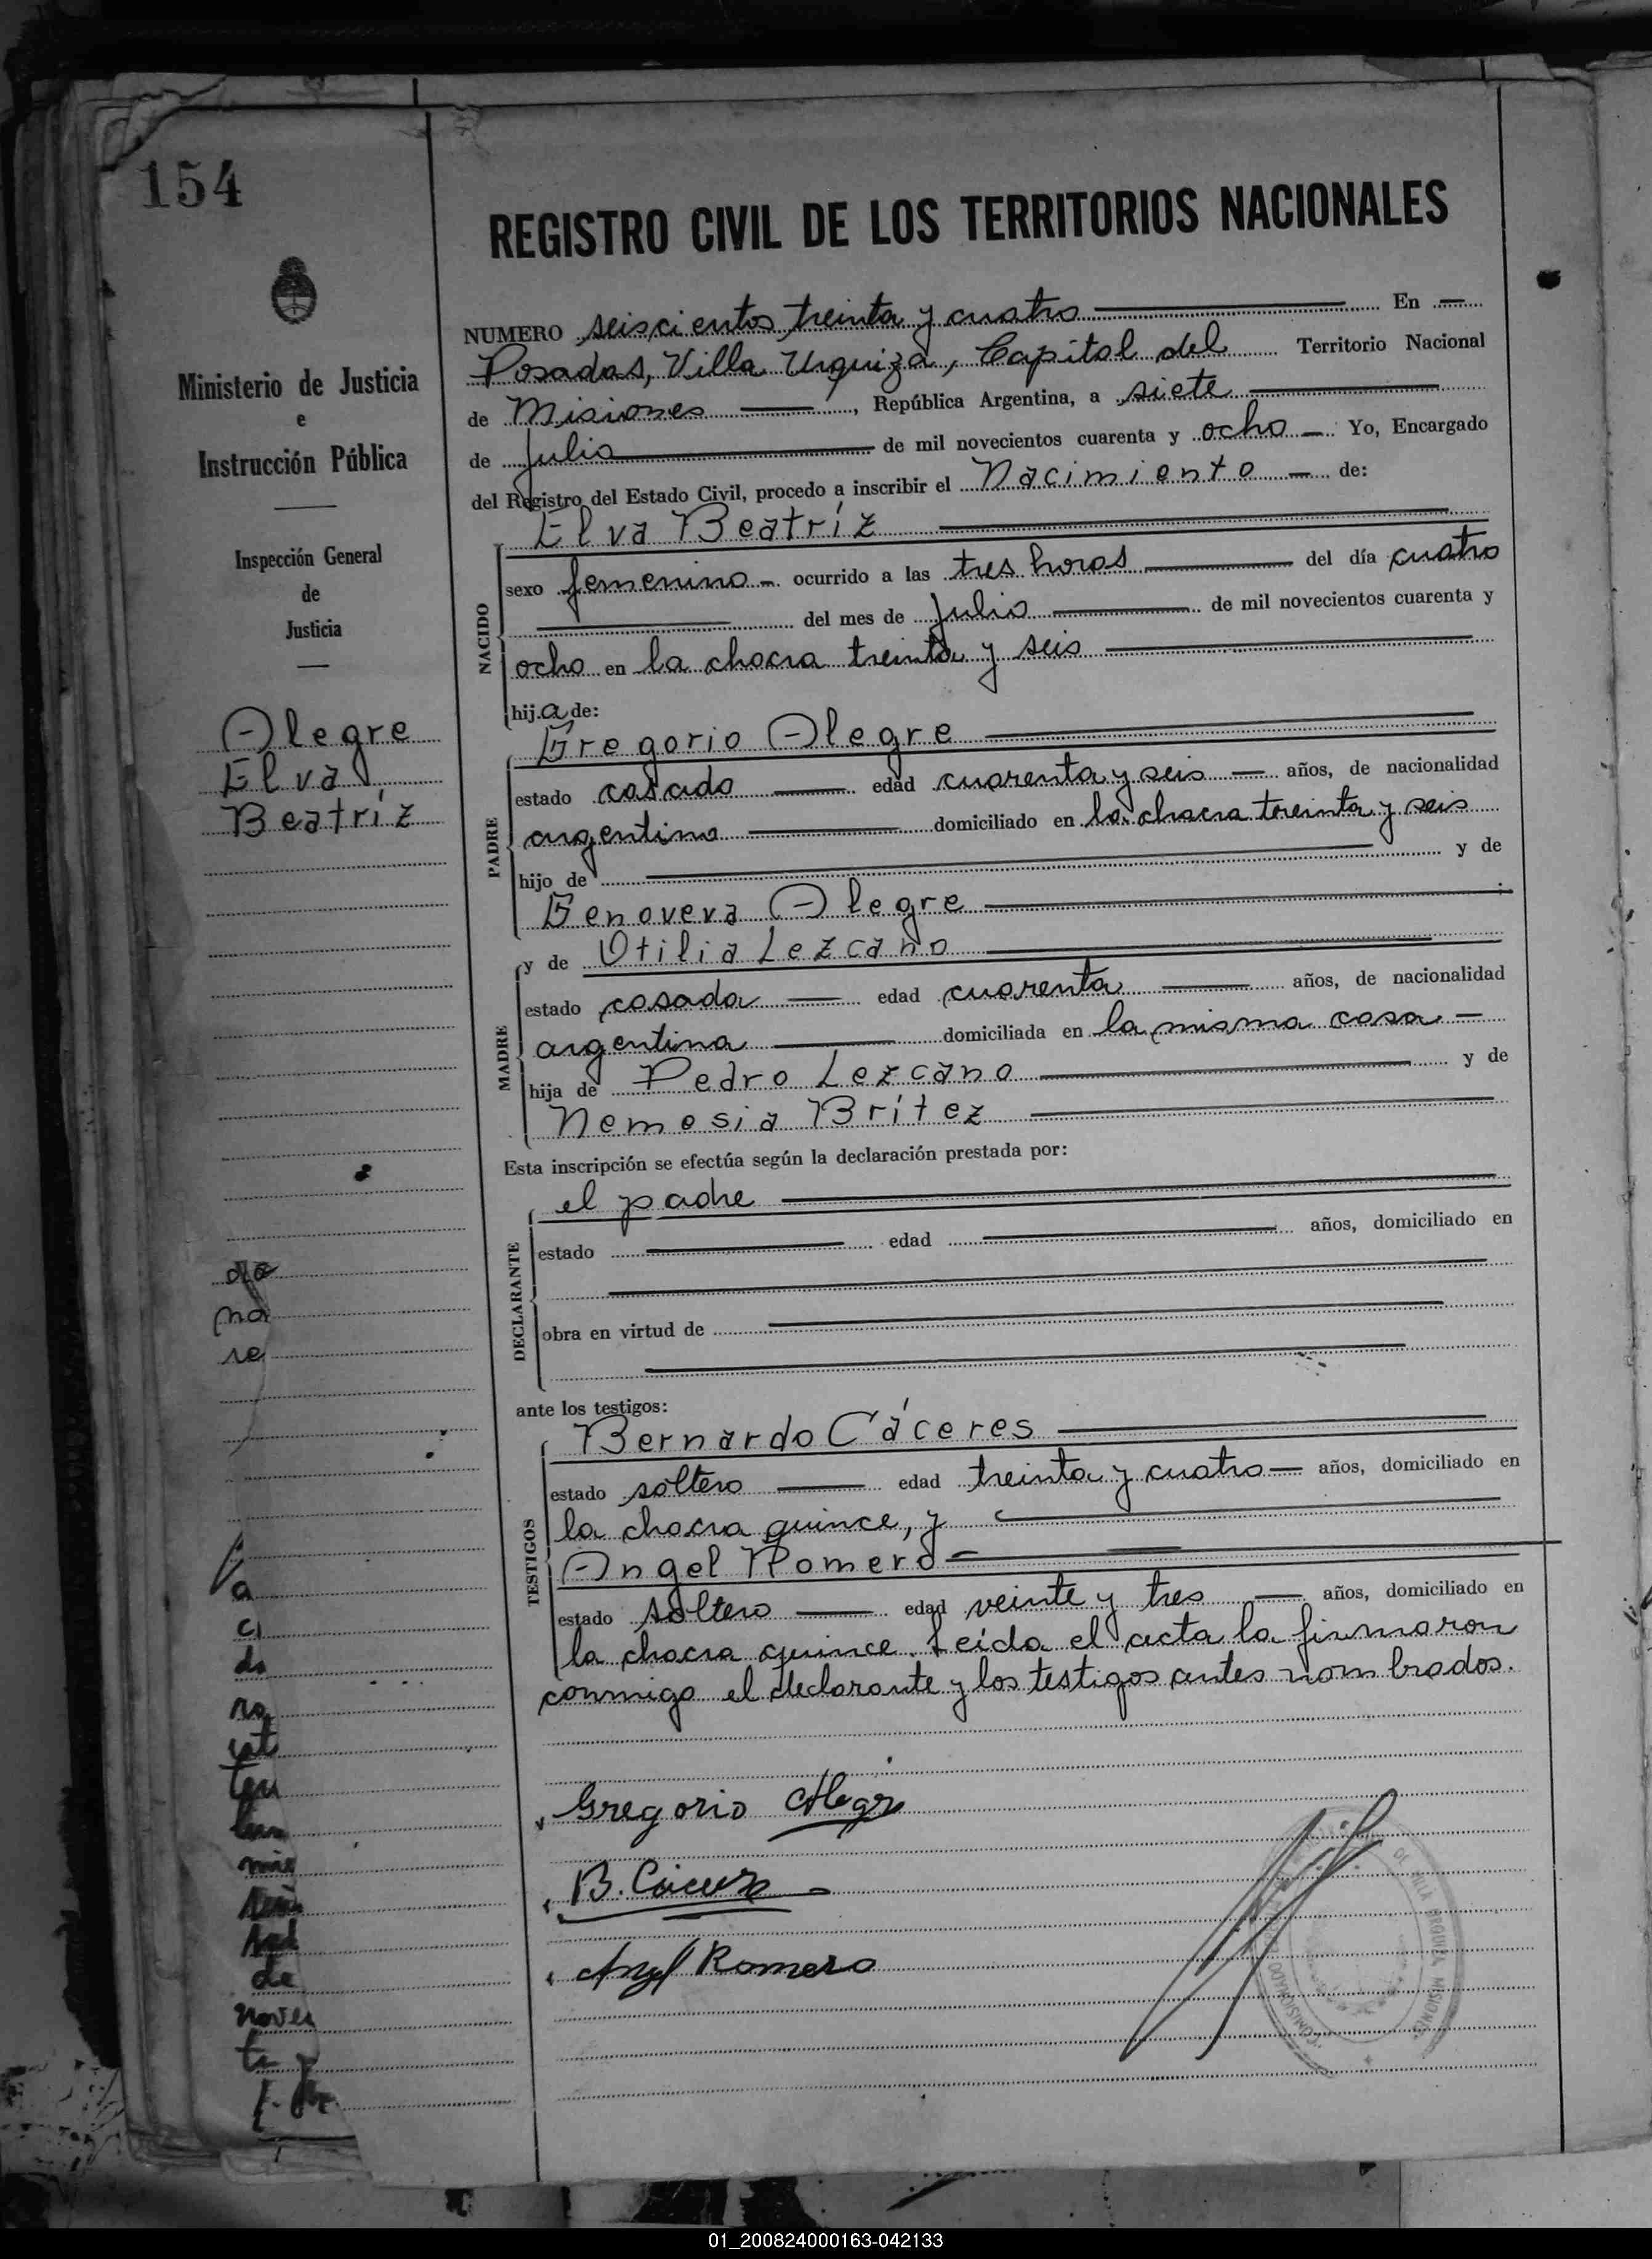 154
Ministerio de Justicia
e
Instrucción Pública
Inspección General
de
Justicia
Alegre
Elva
Beatríz
na
re
a
ci
do
de
noven
REGISTRO CIVIL DE LOS TERRITORIOS NACIONALES
NUMERO seiscientos treinta y cuatro En
Posadas, Villa Urquiza, Capital del Territorio Nacional
de Misiones, República Argentina, a siete
de julio de mil novecientos cuarenta y ocho Yo, Encargado
del Registro del Estado Civil, procedo a inscribir el Nacimiento de:
Elva Beatríz
NACIDO
sexo femenino ocurrido a las tres horas del día cuatro
del mes de julio de mil novecientos cuarenta y
ocho en la chacra treinta y seis
hij.a de:
Gregorio Alegre
PADRE
estado casado edad cuarenta y seis años, de nacionalidad
argentina domiciliado en la chacra treinta y seis
hijo de y de
Genoveva Alegre
y de Otilia Lezcano
MADRE
estado casada edad cuarenta años, de nacionalidad
argentina domiciliada en la misma casa
hija de Pedro Lezcano y de
Nemesia Brítez
Esta inscripción se efectúa según la declaración prestada por:
el padre
DECLARANTE
estado edad años, domiciliado en
obra en virtud de
ante los testigos:
Bernardo Cáceres
TESTIGOS
estado soltero edad treinta y cuatro años, domiciliado en
la chacra quince, y
Angel Romero
estado soltero edad veinte y tres años, domiciliado en
la chacra quince. Leída el acta la firmaron
conmigo el declarante y los testigos antes nombrados.
Gregorio Alegre
B. Cáceres
Angel Romero
COMISIONADO DE VILLA URQUIZA MISIONES
01_200824000163-042133